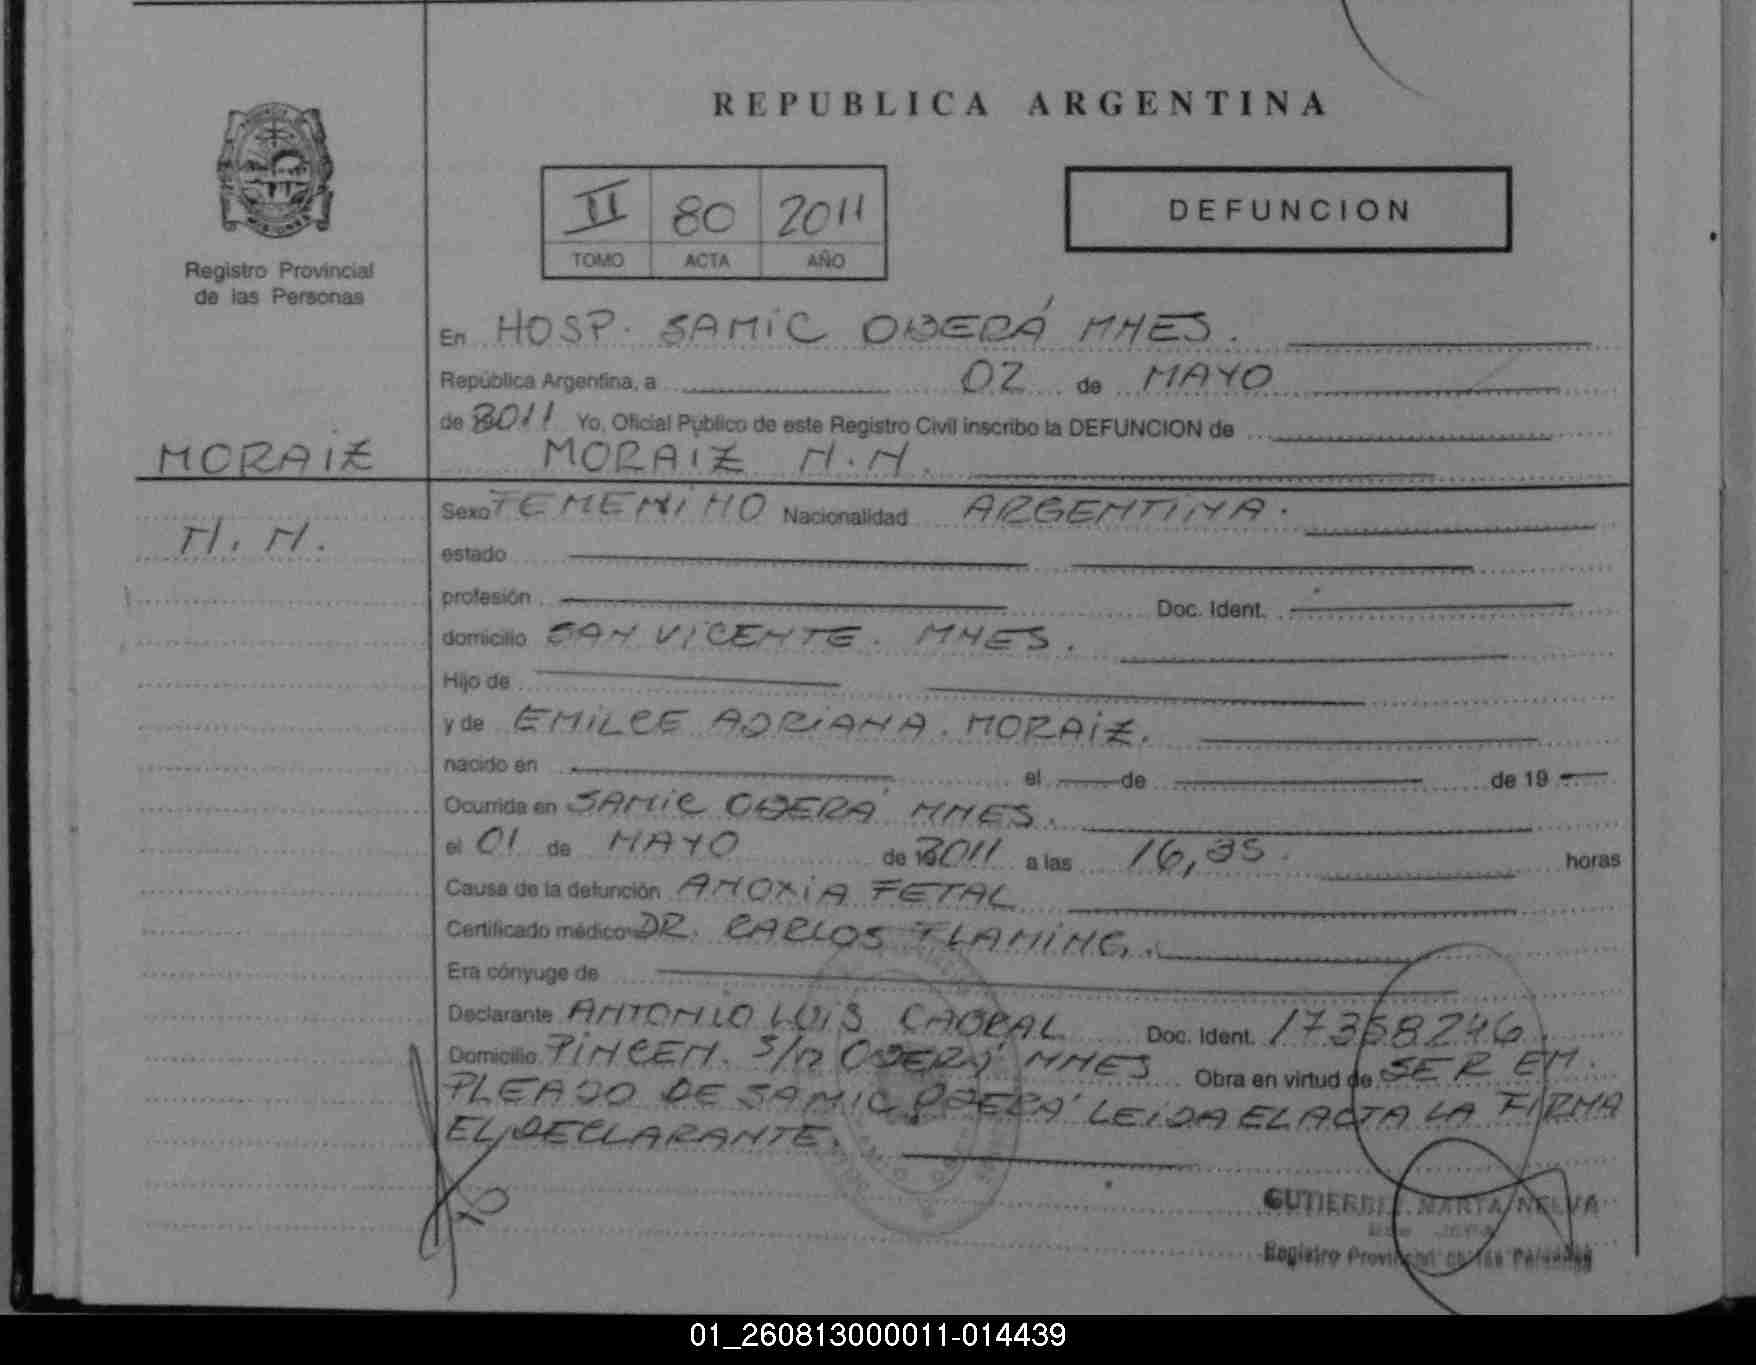 REPUBLICA ARGENTINA
II 80 2011
TOMO ACTA AÑO
DEFUNCION
Registro Provincial
de las Personas
En HOSP. SAMIC OBERÁ MNES.
República Argentina, a 02 de MAYO
de 2011 Yo, Oficial Público de este Registro Civil inscribo la DEFUNCION de
MORAIZ
MORAIZ N.N.
N.N.
Sexo FEMENINO Nacionalidad ARGENTINA.
estado
profesión Doc. Ident.
domicilio SAN VICENTE. MNES.
Hijo de
y de EMILCE ADRIANA. MORAIZ.
nacido en el de de 19
Ocurrida en SAMIC OBERÁ MNES.
el 01 de MAYO de 2011 a las 16,35. horas
Causa de la defunción ANOXIA FETAL
Certificado médico DR. CARLOS FLAMING.
Era cónyuge de
Declarante ANTONIO LUIS CABRAL Doc. Ident. 17358246.
Domicilio PINCEN. S/N OBERÁ MNES Obra en virtud de SER EM
PLEADO DE SAMIC OBERÁ LEIDA EL ACTA LA FIRMA
EL DECLARANTE.
GUTIERREZ MARTA NELVA
Registro Provincial de las Personas
01_260813000011-014439